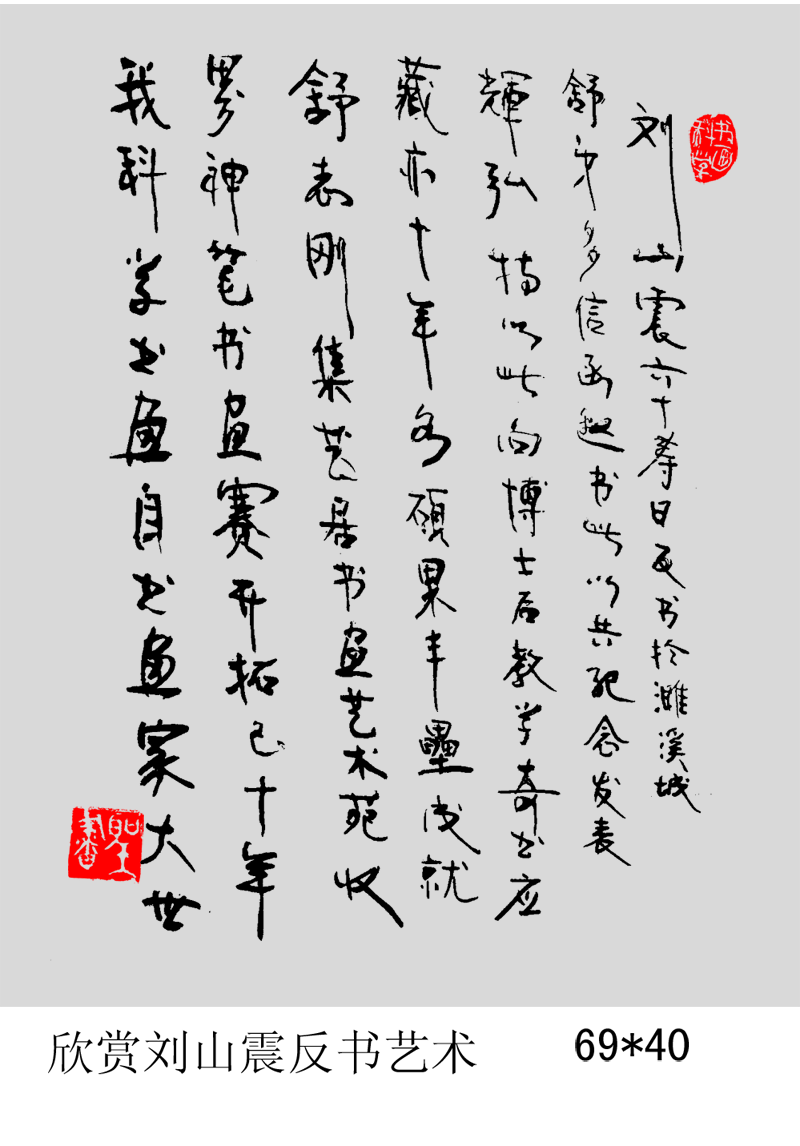 我科学书画自书画家大世
界神笔书画赛开拓已十年
舒志刚集艺居书画艺术苑收
藏亦十年多硕果丰壘成就
輝弘特以此向博士后教学奇书应
舒多信函邀书此以共纪念发表
刘山震六十寿日反书於濉溪城
书画科学
欣赏刘山震反书艺术
69*40